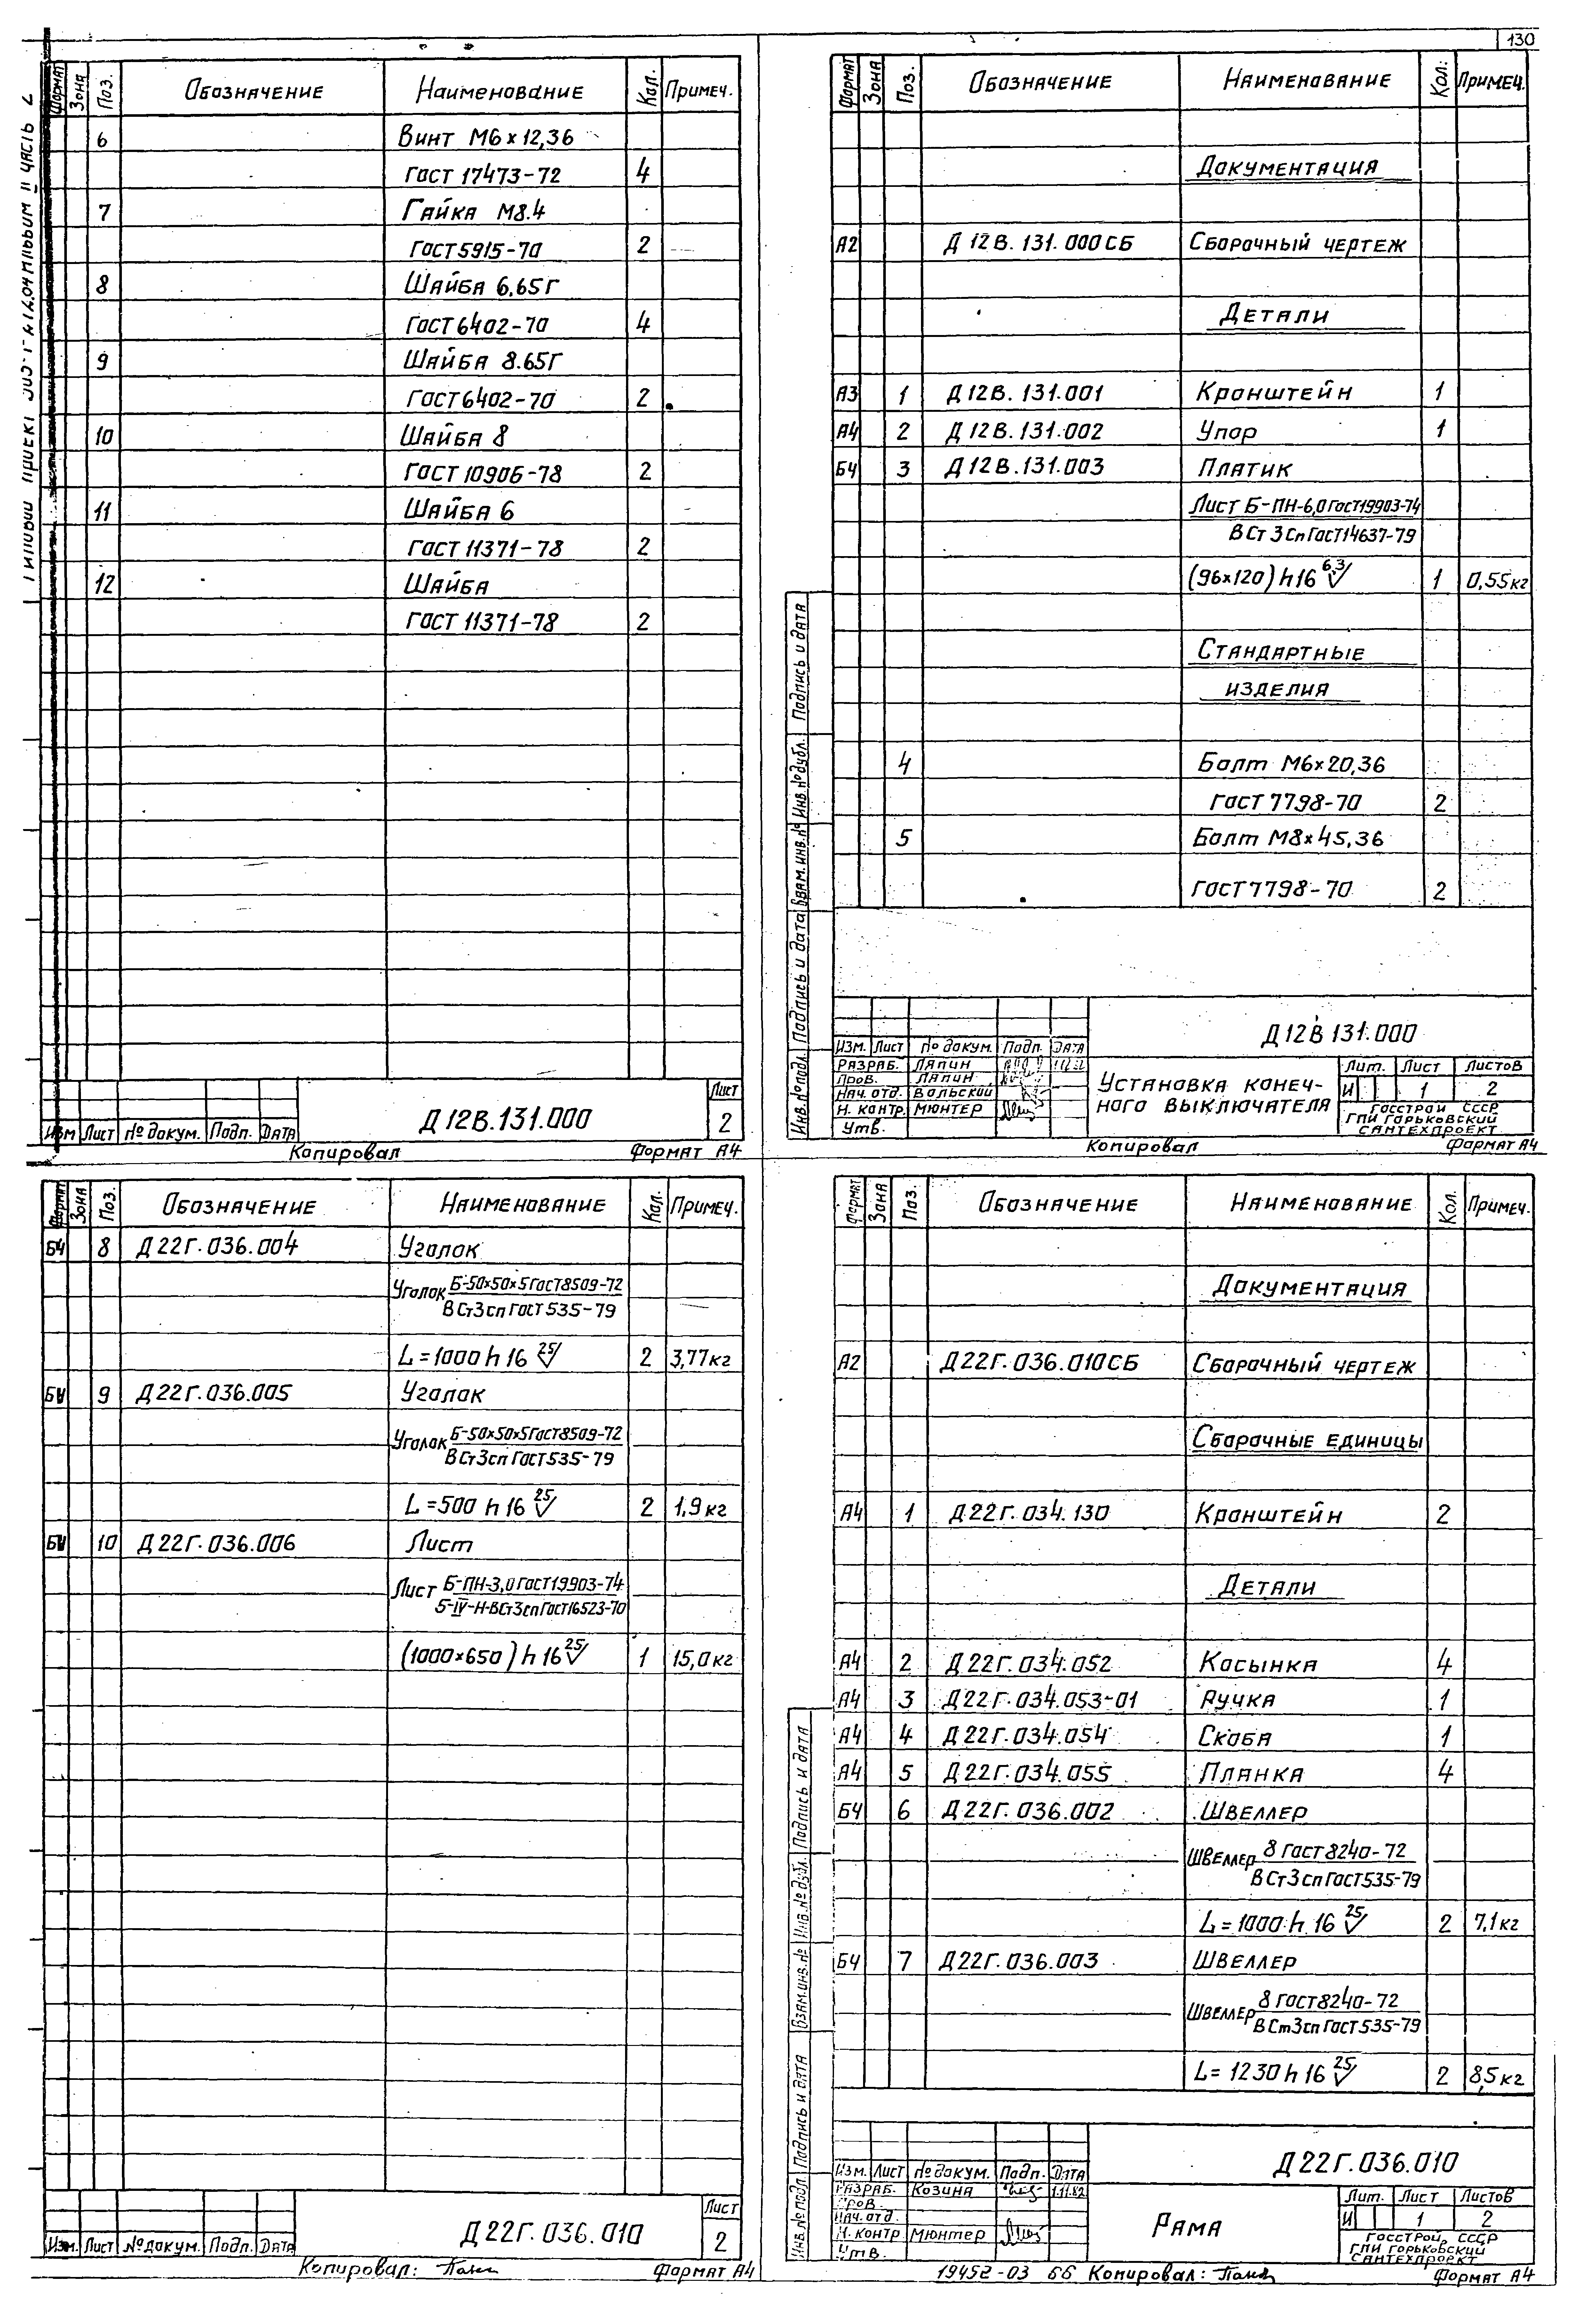 130
Формат Зона Поз. Обозначение Наименование Кол. Примеч.
6 Винт М6×12,36
Гост 17473-72 4
7 Гайка М8.4
Гост 5915-70 2
8 Шайба 6.65Г
Гост 6402-70 4
9 Шайба 8.65Г
Гост 6402-70 2
10 Шайба 8
Гост 10906-78 2
11 Шайба 6
Гост 11371-78 2
12 Шайба
Гост 11371-78 2
Изм Лист № докум. Подп. Дата
Д 12В.131.000
Лист
2
Копировал Формат А4
Формат Зона Поз. Обозначение Наименование Кол. Примеч.
Документация
А2 Д 12В.131.000СБ Сборочный чертеж
Детали
А3 1 Д 12В.131.001 Кронштейн 1
А4 2 Д 12В.131.002 Упор 1
БЧ 3 Д 12В.131.003 Платик
Лист Б-ПН-6,0 Гост 19903-74
В Ст 3 Сп Гост 14637-79
(96×120) h16 6,3 1 0,55 кг
Стандартные
изделия
4 Болт М6×20,36
Гост 7798-70 2
5 Болт М8×45,36
Гост 7798-70 2
Инв.№ подл. Подпись и дата Взам.инв.№ Инв.№ дубл. Подпись и дата
Д 12В 131.000
Изм. Лист № докум. Подп. Дата
Разраб. Ляпин
Пров. Ляпин
Нач. отд. Вольский
Н. контр. Мюнтер
Утв.
Установка конеч-
ного выключателя
Лит. Лист Листов
И 1 2
Госстрой СССР
ГПИ Горьковский
Сантехпроект
Копировал Формат А4
Формат Зона Поз. Обозначение Наименование Кол. Примеч.
БЧ 8 Д 22Г.036.004 Уголок
Уголок Б-50×50×5 Гост 8509-72
В Ст3сп Гост 535-79
L=1000 h 16 25 2 3,77 кг
БЧ 9 Д 22Г.036.005 Уголок
Уголок Б-50×50×5 Гост 8509-72
В Ст3сп Гост 535-79
L=500 h 16 25 2 1,9 кг
БЧ 10 Д 22Г.036.006 Лист
Лист Б-ПН-3,0 Гост 19903-74
5-IV-Н-ВСт3сп Гост 16523-70
(1000×650) h 16 25 1 15,0 кг
Изм. Лист № докум. Подп. Дата
Д 22Г.036.010
Лист
2
Копировал: Формат А4
Формат Зона Поз. Обозначение Наименование Кол. Примеч.
Документация
А2 Д 22Г.036.010СБ Сборочный чертеж
Сборочные единицы
А4 1 Д 22Г.034.130 Кронштейн 2
Детали
А4 2 Д 22Г.034.052 Косынка 4
А4 3 Д 22Г.034.053-01 Ручка 1
А4 4 Д 22Г.034.054 Скоба 1
А4 5 Д 22Г.034.055 Планка 4
БЧ 6 Д 22Г.036.002 Швеллер
Швеллер 8 Гост 8240-72
В Ст3сп Гост 535-79
L=1000 h 16 25 2 7,1 кг
БЧ 7 Д 22Г.036.003 Швеллер
Швеллер 8 Гост 8240-72
В Ст3сп Гост 535-79
L=1230 h 16 25 2 8,5 кг
Инв.№ подл. Подпись и дата Взам.инв.№ Инв.№ дубл. Подпись и дата
Д 22Г.036.010
Изм. Лист № докум. Подп. Дата
Разраб. Козина 1.11.82
Пров.
Нач. отд.
Н. контр Мюнтер
Утв.
Рама
Лит. Лист Листов
И 1 2
Госстрой СССР
ГПИ Горьковский
Сантехпроект
19452-03 66 Копировал: Формат А4